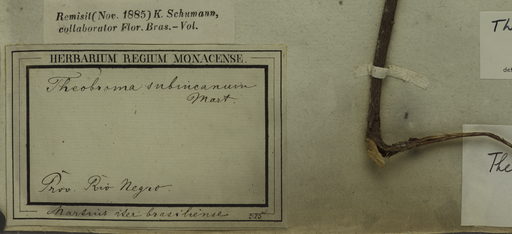 Remisit (Nov. 1885) K. Schumann,
collaborator Flor. Bras.-Vol.
HERBARIUM REGIUM MONACENSE.
Theobroma subincanum
Mart.
Prov. Rio Negro
Martius iter brasiliense
Th
det
The